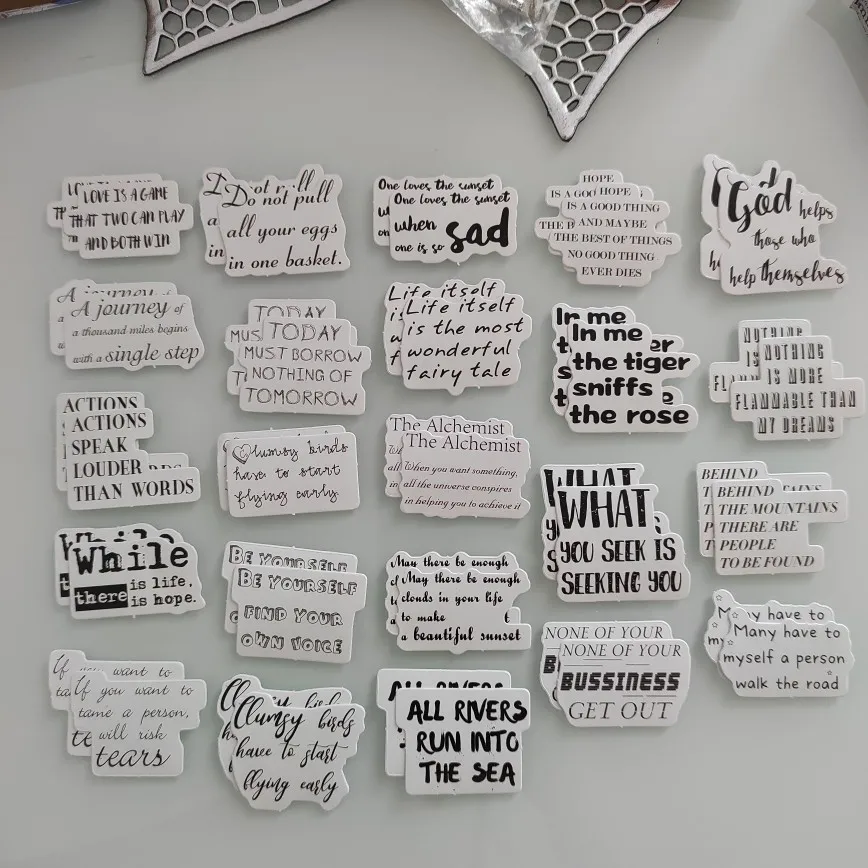 LOVE IS A GAME
THAT TWO CAN PLAY
AND BOTH WIN
Do not pull
all your eggs
in one basket.
One loves the sunset
One loves the sunset
when
one is so sad
HOPE
IS A GOO
HOPE
IS A GOOD THING
THE B
AND MAYBE
THE BEST OF THINGS
NO GOOD THING
EVER DIES
God helps
those who
help themselves
A journey
A journey of
a thousand miles begins
with a single step
TODAY
MUS
TODAY
MUST BORROW
NOTHING OF
TOMORROW
Life itself
Life itself
is the most
wonderful
fairy tale
In me
In me
the tiger
sniffs
the rose
NOTHING
NOTHING
IS MORE
FLAMMABLE THAN
MY DREAMS
ACTIONS
ACTIONS
SPEAK
LOUDER
THAN WORDS
Clumsy birds
have to start
flying early
The Alchemist
The Alchemist
When you want something,
all the universe conspires
in helping you to achieve it
WHAT
WHAT
YOU SEEK IS
SEEKING YOU
BEHIND
BEHIND
THE MOUNTAINS
THERE ARE
PEOPLE
TO BE FOUND
While
there is life,
there is hope.
BE YOURSELF
BE YOURSELF
FIND YOUR
OWN VOICE
May there be enough
May there be enough
clouds in your life
to make t
a beautiful sunset
NONE OF YOUR
NONE OF YOUR
BUSSINESS
GET OUT
Many have to
Many have to
myself a person
walk the road
If you want to
If you want to
tame a person,
will risk
tears
Clumsy birds
Clumsy birds
have to start
flying early
ALL RIVERS
ALL RIVERS
RUN INTO
THE SEA